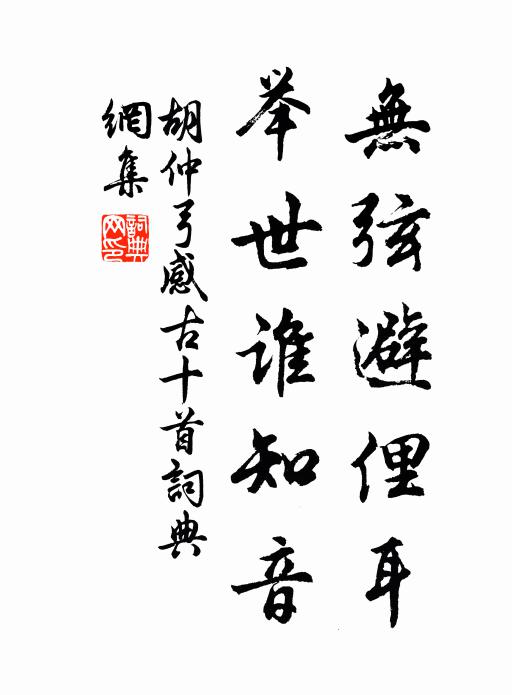 無弦避俚耳
举世谁知音
胡仲弓感古十首詞典
網集
詞典
网印